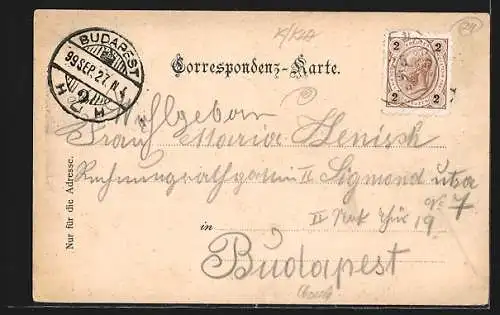 BUDAPEST
99 SEP. 27. N 4
2
Correspondenz-Karte.
2 2
2 2
Wohlgeboren
Frau Maria Henisch
Rechnungsrathgattin II Sigmond utca
Nº 7
in II 19
Budapest
Nur für die Adresse.